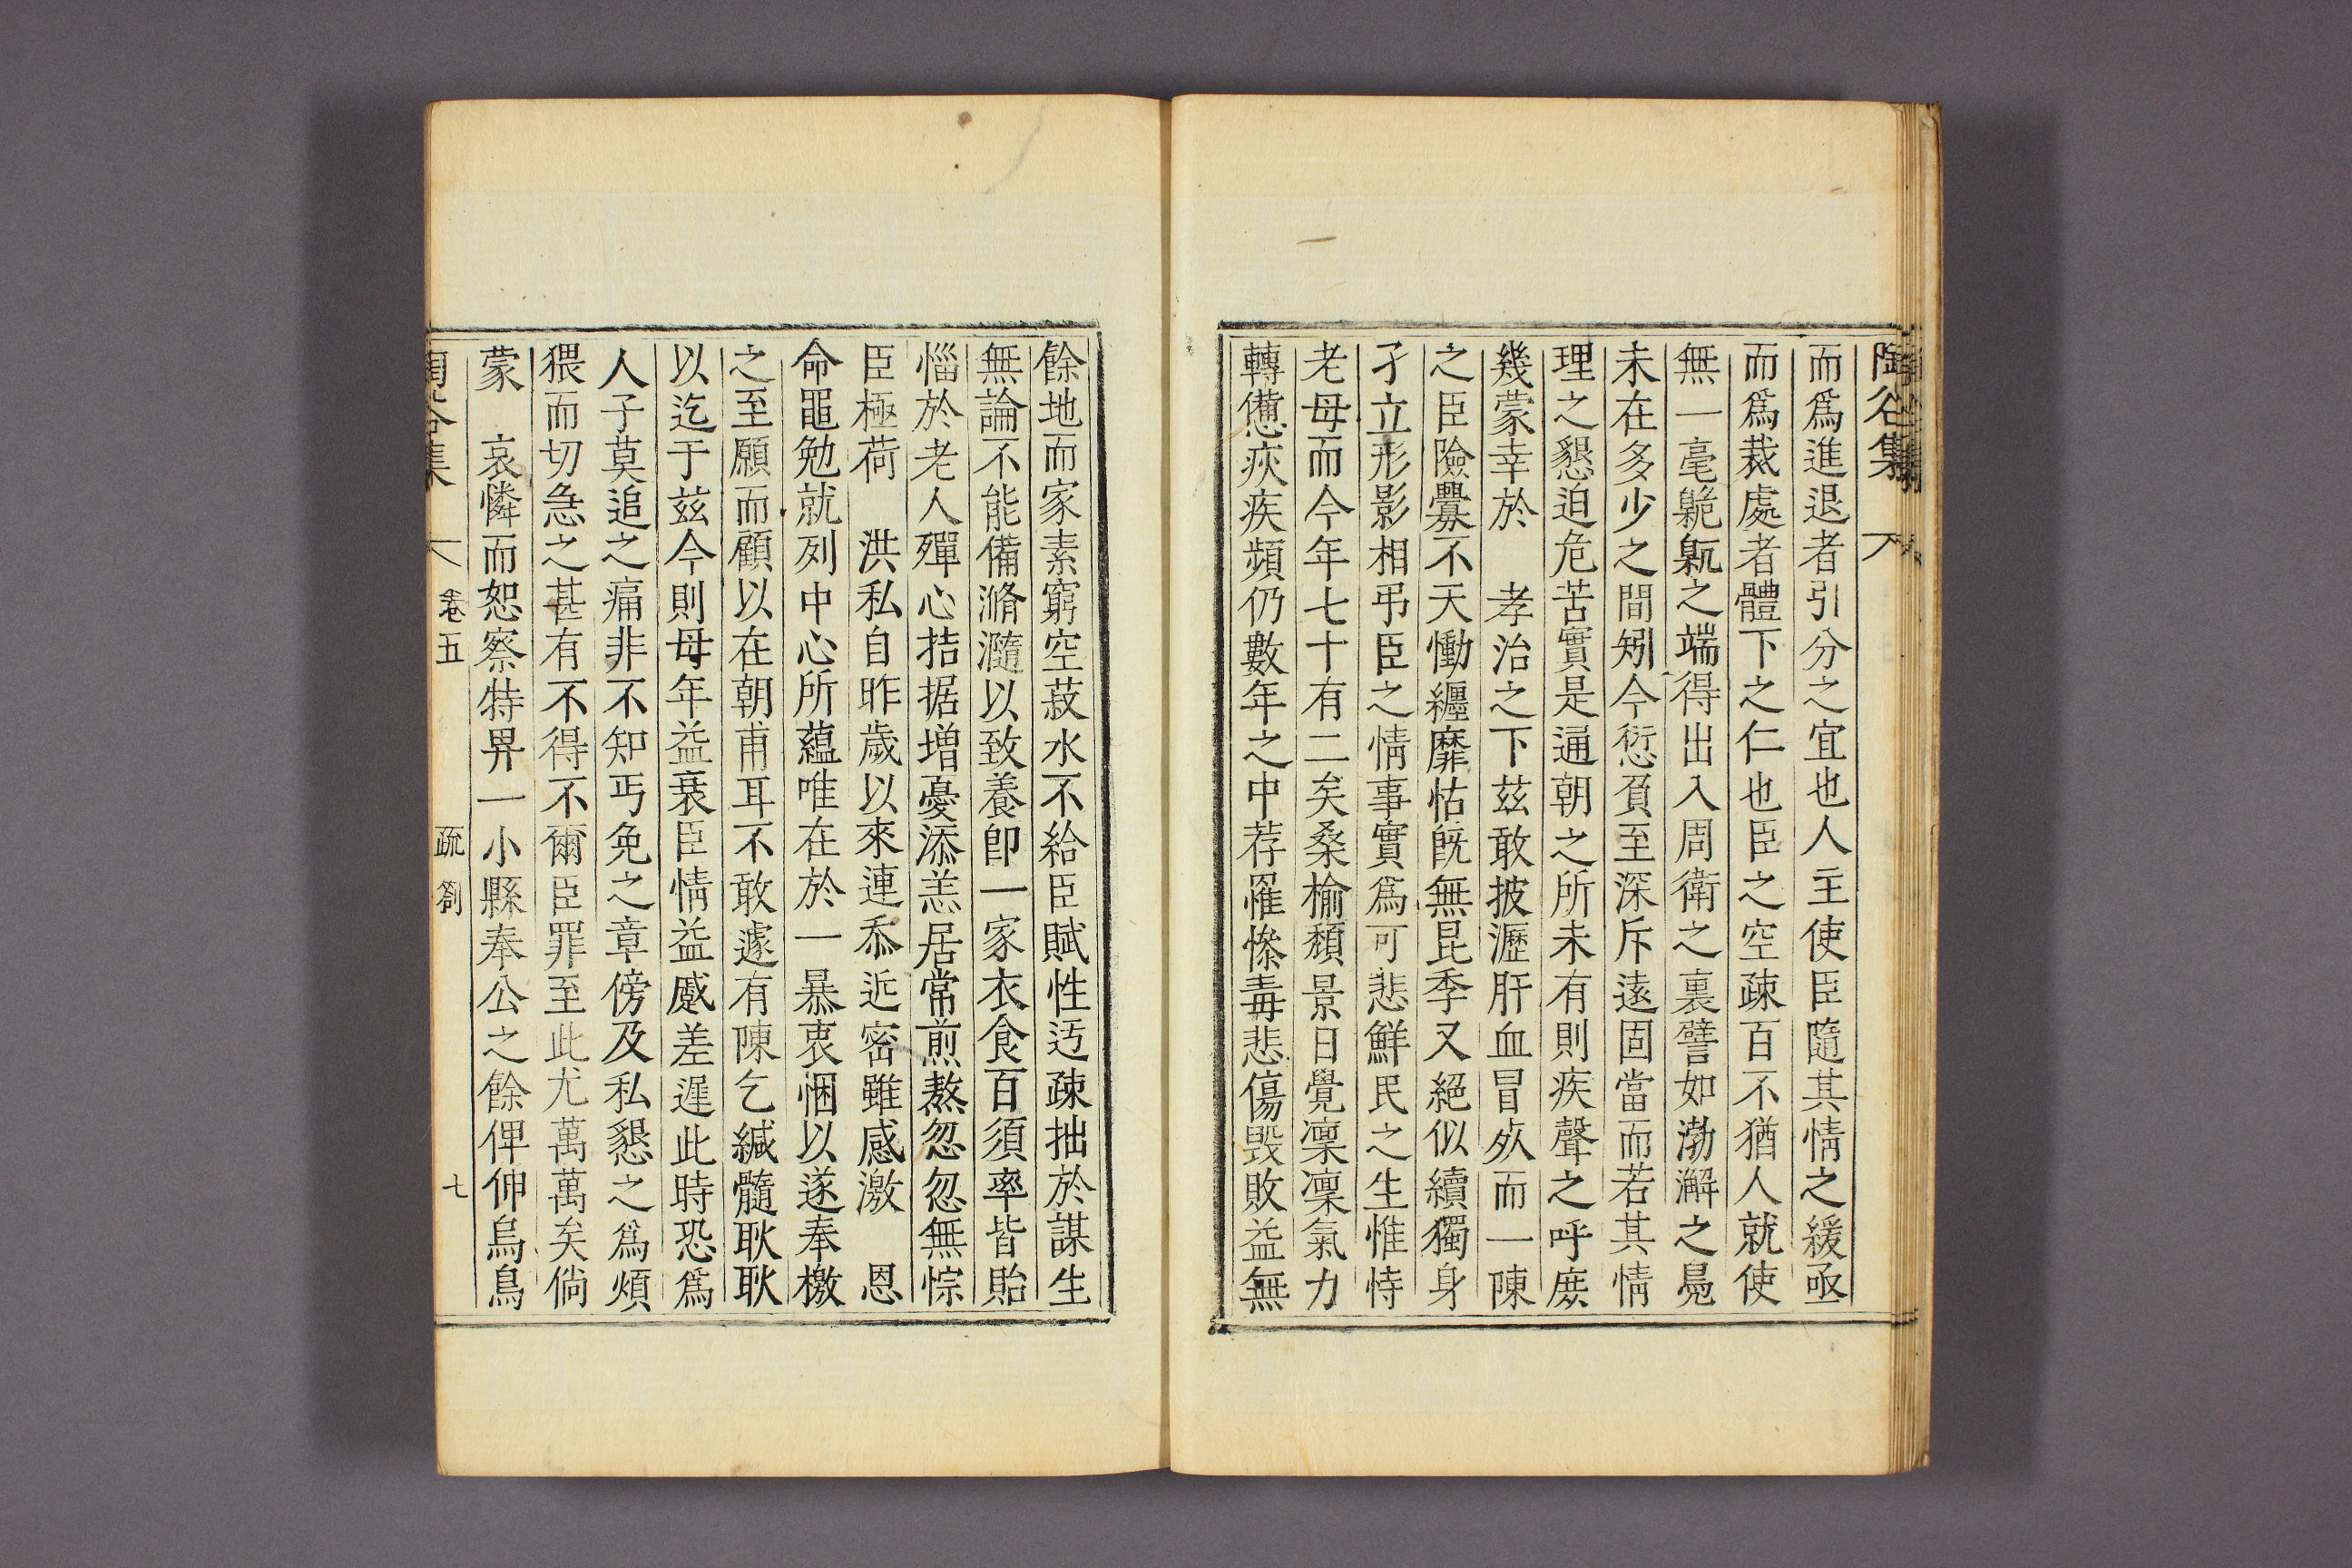 陶谷集
而爲進退者引分之宜也人主使臣隨其情之緩亟
而爲裁處者體下之仁也臣之空疎百不猶人就使
無一毫臲卼之端得出入周衛之裏譬如渤澥之鳧
未在多少之間矧今愆負至深斥逺固當而若其情
理之懇迫危苦實是通朝之所未有則疾聲之呼庶
幾蒙幸於　孝治之下兹敢披瀝肝血冒死而一陳
之臣險釁不天慟纏靡怙旣無昆季又絕似續獨身
孑立形影相弔臣之情事實爲可悲鮮民之生惟恃
老母而今年七十有二矣桑榆頹景日覺凜凜氣力
轉憊疢疾頻仍數年之中荐罹慘毒悲傷毁敗益無
餘地而家素窮空菽水不給臣賦性迃疎拙於謀生
無論不能備滫瀡以致養卽一家衣食百須率皆貽
惱於老人殫心拮据増憂添恙居常煎熬忽忽無悰
臣極荷　洪私自昨歲以來連忝近密雖感激　恩
命黽勉就列中心所蘊唯在於一暴衷悃以遂奉檄
之至願而顧以在朝甫耳不敢遽有陳乞緘髓耿耿
以迄于兹今則母年益衰臣情益慼差遲此時恐爲
人子莫追之痛非不知丐免之章傍及私懇之爲煩
猥而切急之甚有不得不爾臣罪至此尤萬萬矣倘
蒙　哀憐而恕察特畀一小縣奉公之餘俾伸烏鳥
陶谷集　卷五　疏箚　七